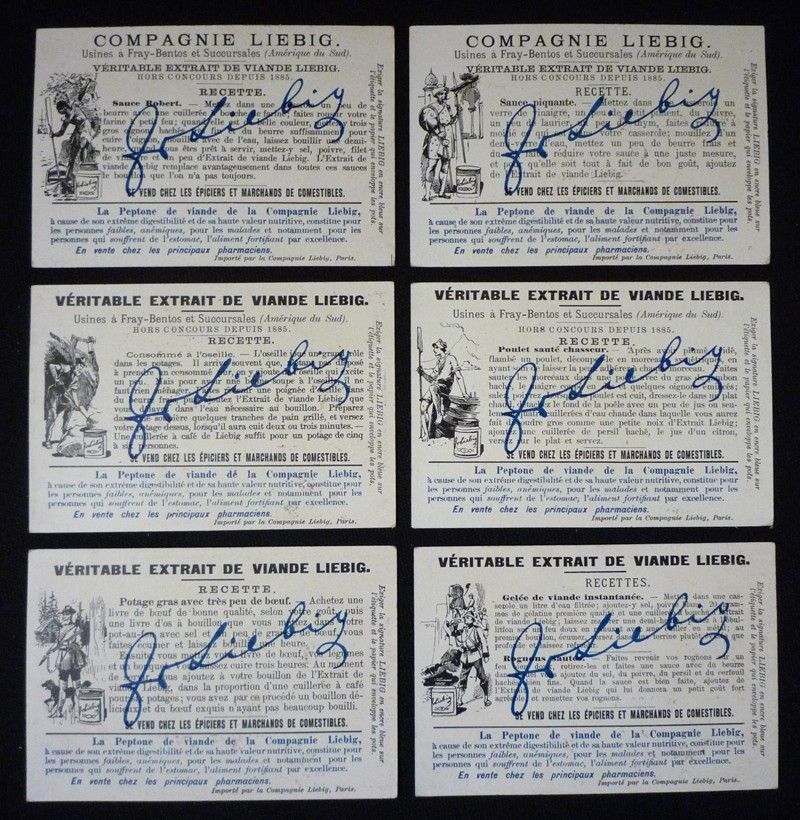 COMPAGNIE LIEBIG.
Usines à Fray-Bentos et Succursales (Amérique du Sud).
VÉRITABLE EXTRAIT DE VIANDE LIEBIG.
HORS CONCOURS DEPUIS 1885.
RECETTE.
Sauce Robert. — Mettez dans une un peu de
beurre avec une cuillerée
farine à petit feu; quand
gros oignon haché beurre suffisamment pour
cuire l'oignon de l'eau, laissez bouillir une demi-
heure. êtes prêt à servir, mettez-y sel, poivre, filet
de vinaigre et un peu d'Extrait de viande Liebig. L'Extrait de
viande Liebig remplace avantageusement dans toutes ces sauces
le bouillon que l'on n'a pas toujours.
SE VEND CHEZ LES ÉPICIERS ET MARCHANDS DE COMESTIBLES.
La Peptone de viande de la Compagnie Liebig,
à cause de son extrême digestibilité et de sa haute valeur nutritive, constitue pour
les personnes faibles, anémiques, pour les malades et notamment pour les
personnes qui souffrent de l'estomac, l'aliment fortifiant par excellence.
En vente chez les principaux pharmaciens.
Importé par la Compagnie Liebig, Paris.
Exiger la signature LIEBIG en encre bleue sur
l'étiquette et le papier qui enveloppe les pots.
Liebig
COMPAGNIE LIEBIG.
Usines à Fray-Bentos et Succursales (Amérique du Sud).
VÉRITABLE EXTRAIT DE VIANDE LIEBIG.
HORS CONCOURS DEPUIS 1885.
RECETTE.
Sauce piquante. — Mettez dans un
verre de vinaigre, du poivre,
un peu de laurier, faites
moitié de ce qui votre casserole; mouillez
d'eau, mettez un peu de beurre frais et
réduire votre sauce à une juste mesure,
qu'elle soit tout à fait de bon goût, ajoutez
Extrait de viande Liebig.
SE VEND CHEZ LES ÉPICIERS ET MARCHANDS DE COMESTIBLES.
La Peptone de viande de la Compagnie Liebig,
à cause de son extrême digestibilité et de sa haute valeur nutritive, constitue pour
les personnes faibles, anémiques, pour les malades et notamment pour les
personnes qui souffrent de l'estomac, l'aliment fortifiant par excellence.
En vente chez les principaux pharmaciens.
Importé par la Compagnie Liebig, Paris.
Exiger la signature LIEBIG en encre bleue sur
l'étiquette et le papier qui enveloppe les pots.
Liebig
VÉRITABLE EXTRAIT DE VIANDE LIEBIG.
Usines à Fray-Bentos et Succursales (Amérique du Sud).
HORS CONCOURS DEPUIS 1885.
RECETTE.
Consommé à l'oseille. — L'oseille joue un grand rôle
dans les potages. Il arrive souvent que, étant peu disposé
à prendre un consommé pur, on y ajoute l'oseille qui excite
un peu. Mais pour avoir une bonne soupe à l'oseille il ne
faut une poignée de feuilles
dans l'eau nécessaire au bouillon. Préparez
dans la soupière quelques tranches de pain grillé, et versez
votre potage dessus, lorsqu'il aura cuit deux ou trois minutes. —
Une cuillerée à café de Liebig suffit pour un potage de cinq
à six personnes.
SE VEND CHEZ LES ÉPICIERS ET MARCHANDS DE COMESTIBLES.
La Peptone de viande de la Compagnie Liebig,
à cause de son extrême digestibilité et de sa haute valeur nutritive, constitue pour
les personnes faibles, anémiques, pour les malades et notamment pour les
personnes qui souffrent de l'estomac, l'aliment fortifiant par excellence.
En vente chez les principaux pharmaciens.
Importé par la Compagnie Liebig, Paris.
Exiger la signature LIEBIG en encre bleue sur
l'étiquette et le papier qui enveloppe les pots.
Liebig
VÉRITABLE EXTRAIT DE VIANDE LIEBIG.
Usines à Fray-Bentos et Succursales (Amérique du Sud).
HORS CONCOURS DEPUIS 1885.
RECETTE.
Poulet sauté chasseur. — Après avoir plumé, vidé,
flambé un poulet, découpez-le en morceaux
ayant de laisser la peau morceaux.
faites-les cuire avec du gras
quelques oignons
poulet est cuit, dressez-le dans un
chaud, le fond de la poêle avec un peu de jus ou
cuillerées d'eau chaude dans laquelle vous aurez
fait gros comme une petite noix d'Extrait Liebig;
ajoutez une cuillerée de persil haché, le jus d'un citron,
versez sur le plat et servez.
SE VEND CHEZ LES ÉPICIERS ET MARCHANDS DE COMESTIBLES.
La Peptone de viande de la Compagnie Liebig,
à cause de son extrême digestibilité et de sa haute valeur nutritive, constitue pour
les personnes faibles, anémiques, pour les malades et notamment pour les
personnes qui souffrent de l'estomac, l'aliment fortifiant par excellence.
En vente chez les principaux pharmaciens.
Importé par la Compagnie Liebig, Paris.
Exiger la signature LIEBIG en encre bleue sur
l'étiquette et le papier qui enveloppe les pots.
Liebig
VÉRITABLE EXTRAIT DE VIANDE LIEBIG.
RECETTE.
Potage gras avec très peu de bœuf. — Achetez une
livre de bœuf de bonne qualité, selon votre goût, puis
une livre d'os à bouillon, que vous mettez dans votre
pot-au-feu avec sel et un peu de
faire et laisser une heure.
Ensuite livre de bœuf, vos légumes
et laissez cuire trois heures. Au moment
de vous ajoutez à votre bouillon de l'Extrait
Liebig, dans la proportion d'une cuillerée à café
potages; vous avez par ce procédé un bouillon dé-
licieux et du bœuf exquis n'ayant pas beaucoup bouilli.
SE VEND CHEZ LES ÉPICIERS ET MARCHANDS DE COMESTIBLES.
La Peptone de viande de la Compagnie Liebig,
à cause de son extrême digestibilité et de sa haute valeur nutritive, constitue pour
les personnes faibles, anémiques, pour les malades et notamment pour les
personnes qui souffrent de l'estomac, l'aliment fortifiant par excellence.
En vente chez les principaux pharmaciens.
Importé par la Compagnie Liebig, Paris.
Exiger la signature LIEBIG en encre bleue sur
l'étiquette et le papier qui enveloppe les pots.
Liebig
VÉRITABLE EXTRAIT DE VIANDE LIEBIG.
RECETTES.
Gelée de viande instantanée. — Mettez dans une cas-
serole un litre d'eau filtrée; ajoutez-y sel, poivre,
de gélatine première qualité et une cuillerée à bouche d'Extrait
de viande Liebig; laissez
un peu feu doux en
premier
profitable en maladie.
Rognons sautés. — Faites revenir vos rognons
feu retirez- et faites une sauce avec du beurre
dans ajoutez du sel, du poivre, du persil et du cerfeuil
hachés bien fins. Quand la sauce est bien faite, ajoutez de
l'Extrait de viande Liebig qui lui donnera un petit goût fort
agréable et remettez vos rognons.
SE VEND CHEZ LES ÉPICIERS ET MARCHANDS DE COMESTIBLES.
La Peptone de viande de la Compagnie Liebig,
à cause de son extrême digestibilité et de sa haute valeur nutritive, constitue pour
les personnes faibles, anémiques, pour les malades et notamment pour les
personnes qui souffrent de l'estomac, l'aliment fortifiant par excellence.
En vente chez les principaux pharmaciens.
Importé par la Compagnie Liebig, Paris.
Exiger la signature LIEBIG en encre bleue sur
l'étiquette et le papier qui enveloppe les pots.
Liebig